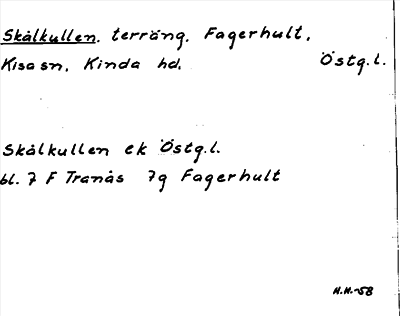 Skålkullen. terräng. Fagerhult,
Kisa sn, Kinda hd. Östg.l.
Skålkullen ek Östg.l.
bl. 7 F Tranås 7g Fagerhult
H.H.-58